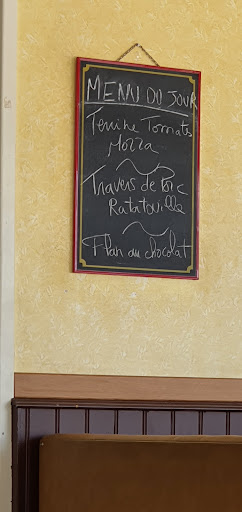 MENU DU JOUR
Terrine Tomates
Mozza
Travers de Porc
Ratatouille
Flan au chocolat